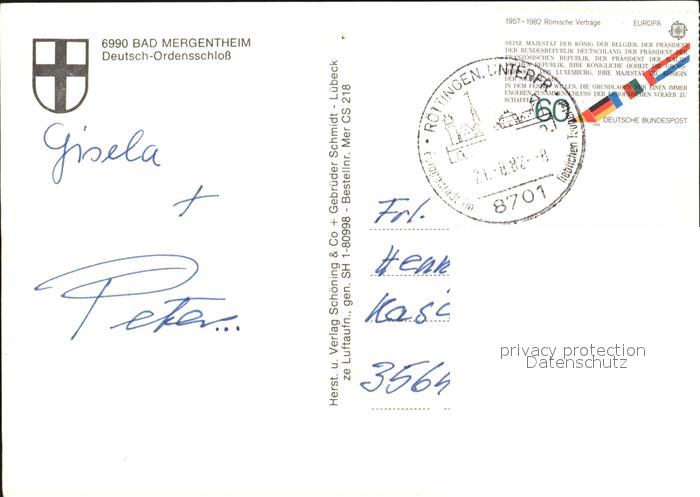 6990 BAD MERGENTHEIM
Deutsch-Ordensschloß
Gisela
+
Peter...
Herst. u. Verlag Schöning & Co + Gebrüder Schmidt - Lübeck
ze Luftaufn., gen. SH 1-80998 - Bestellnr. Mer CS 218
1957–1982 Römische Verträge EUROPA
SEINE MAJESTÄT DER KÖNIG DER BELGIER, DER PRÄSIDENT
DER BUNDESREPUBLIK DEUTSCHLAND, DER PRÄSIDENT DER
FRANZÖSISCHEN REPUBLIK, DER PRÄSIDENT DER
REPUBLIK, IHRE KÖNIGLICHE HOHEIT DIE
VON LUXEMBURG, IHRE MAJESTÄT DIE KÖNIGIN
DER
WILLEN, DIE GRUNDLAGEN FÜR EINEN IMMER
ENGEREN ZUSAMMENSCHLUSS DER EUROPÄISCHEN VÖLKER ZU
SCHAFFEN
60
DEUTSCHE BUNDESPOST
RÖTTINGEN, UNTERFR
Europastadt im lieblichen
8701
Frl.
Henn
Kasc
3564
privacy protection
Datenschutz